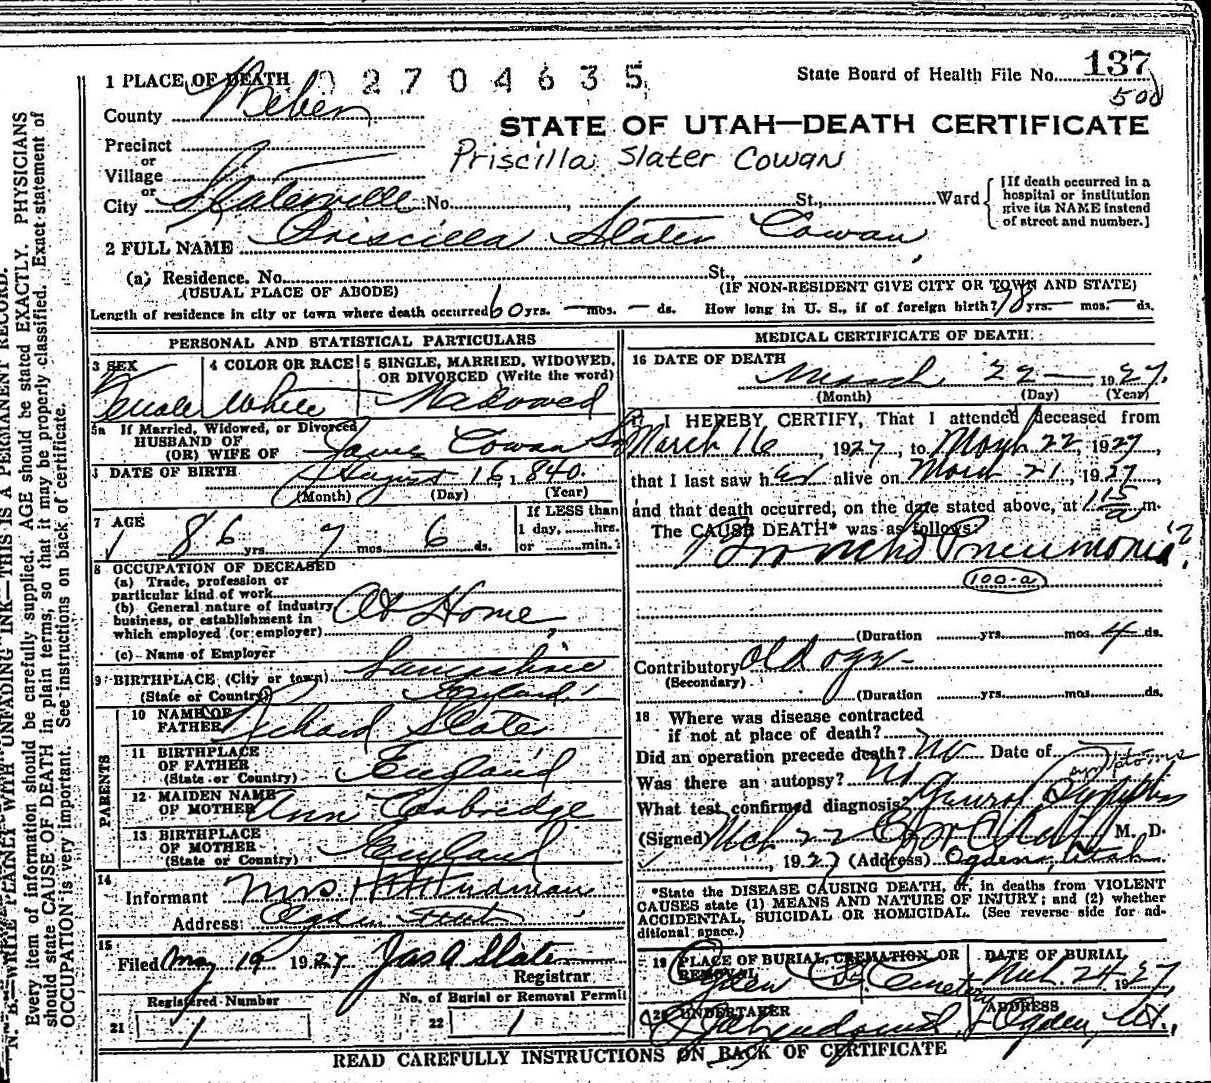 N. B.—WRITE PLAINLY WITH UNFADING INK—THIS IS A PERMANENT RECORD.
Every item of information should be carefully supplied. AGE should be stated EXACTLY. PHYSICIANS
should state CAUSE OF DEATH in plain terms, so that it may be properly classified. Exact statement of
OCCUPATION is very important. See instructions on back of certificate.
1 PLACE OF DEATH 02704635
State Board of Health File No. 137
500
County Weber
STATE OF UTAH—DEATH CERTIFICATE
Precinct
Priscilla Slater Cowan
or
Village
or
City Slaterville No. , St., Ward
[If death occurred in a
hospital or institution
give its NAME instead
of street and number.]
2 FULL NAME Priscilla Slater Cowan
(a) Residence. No. St.,
(USUAL PLACE OF ABODE) (IF NON-RESIDENT GIVE CITY OR TOWN AND STATE)
Length of residence in city or town where death occurred 60 yrs. — mos. — ds. How long in U. S., if of foreign birth? 78 yrs. — mos. — ds.
PERSONAL AND STATISTICAL PARTICULARS
3 SEX
Female
4 COLOR OR RACE
White
5 SINGLE, MARRIED, WIDOWED,
OR DIVORCED (Write the word)
Widowed
5a If Married, Widowed, or Divorced
HUSBAND OF
(OR) WIFE OF James Cowan Sr
DATE OF BIRTH August 16 1840.
(Month) (Day) (Year)
7 AGE
86 yrs. 7 mos. 6 ds.
If LESS than
1 day, hrs.
or min.
8 OCCUPATION OF DECEASED
(a) Trade, profession or
particular kind of work
(b) General nature of industry,
business, or establishment in
which employed (or employer)
At Home
(c) Name of Employer
9 BIRTHPLACE (City or town) Lancashire
(State or Country) England
PARENTS
10 NAME OF
FATHER Richard Slater
11 BIRTHPLACE
OF FATHER
(State or Country) England
12 MAIDEN NAME
OF MOTHER Ann
13 BIRTHPLACE
OF MOTHER
(State or Country) England
14
Informant Mrs.
Address Ogden Utah
15
Filed May 19 1927 Jas A Slater
Registrar
Registered Number
21 1
No. of Burial or Removal Permit
22 1
MEDICAL CERTIFICATE OF DEATH
16 DATE OF DEATH
March 22 — 1927.
(Month) (Day) (Year)
17 I HEREBY CERTIFY, That I attended deceased from
March 16, 1927, to Mch 22 1927,
that I last saw her alive on March 21, 1927,
and that death occurred, on the date stated above, at 1 15 a m.
The CAUSE DEATH* was as follows:
Broncho Pneumonia
100-a
(Duration yrs. mos. 4 ds.
Contributory Old age —
(Secondary)
(Duration yrs. mos. ds.
18 Where was disease contracted
if not at place of death?
Did an operation precede death? No Date of
Was there an autopsy? No
What test confirmed diagnosis? General Symptoms
(Signed) Mch 22 M. D.
, 1927 (Address) Ogden, Utah
*State the DISEASE CAUSING DEATH, or, in deaths from VIOLENT
CAUSES state (1) MEANS AND NATURE OF INJURY; and (2) whether
ACCIDENTAL, SUICIDAL OR HOMICIDAL. (See reverse side for ad-
ditional space.)
19 PLACE OF BURIAL, CREMATION OR
REMOVAL
Ogden City Cemetery
DATE OF BURIAL
Mch. 24 1927
20 UNDERTAKER
ADDRESS
Ogden, Ut.,
READ CAREFULLY INSTRUCTIONS ON BACK OF CERTIFICATE